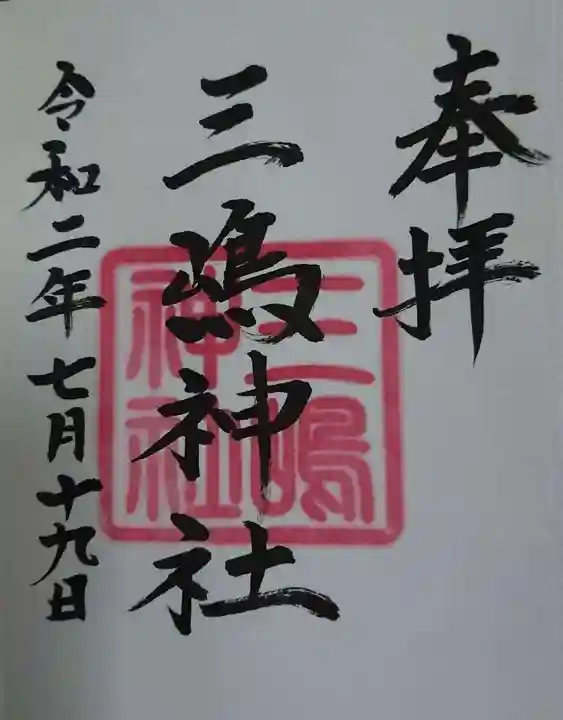 奉拝
三嶋神社
三嶋
神社
令和二年七月十九日